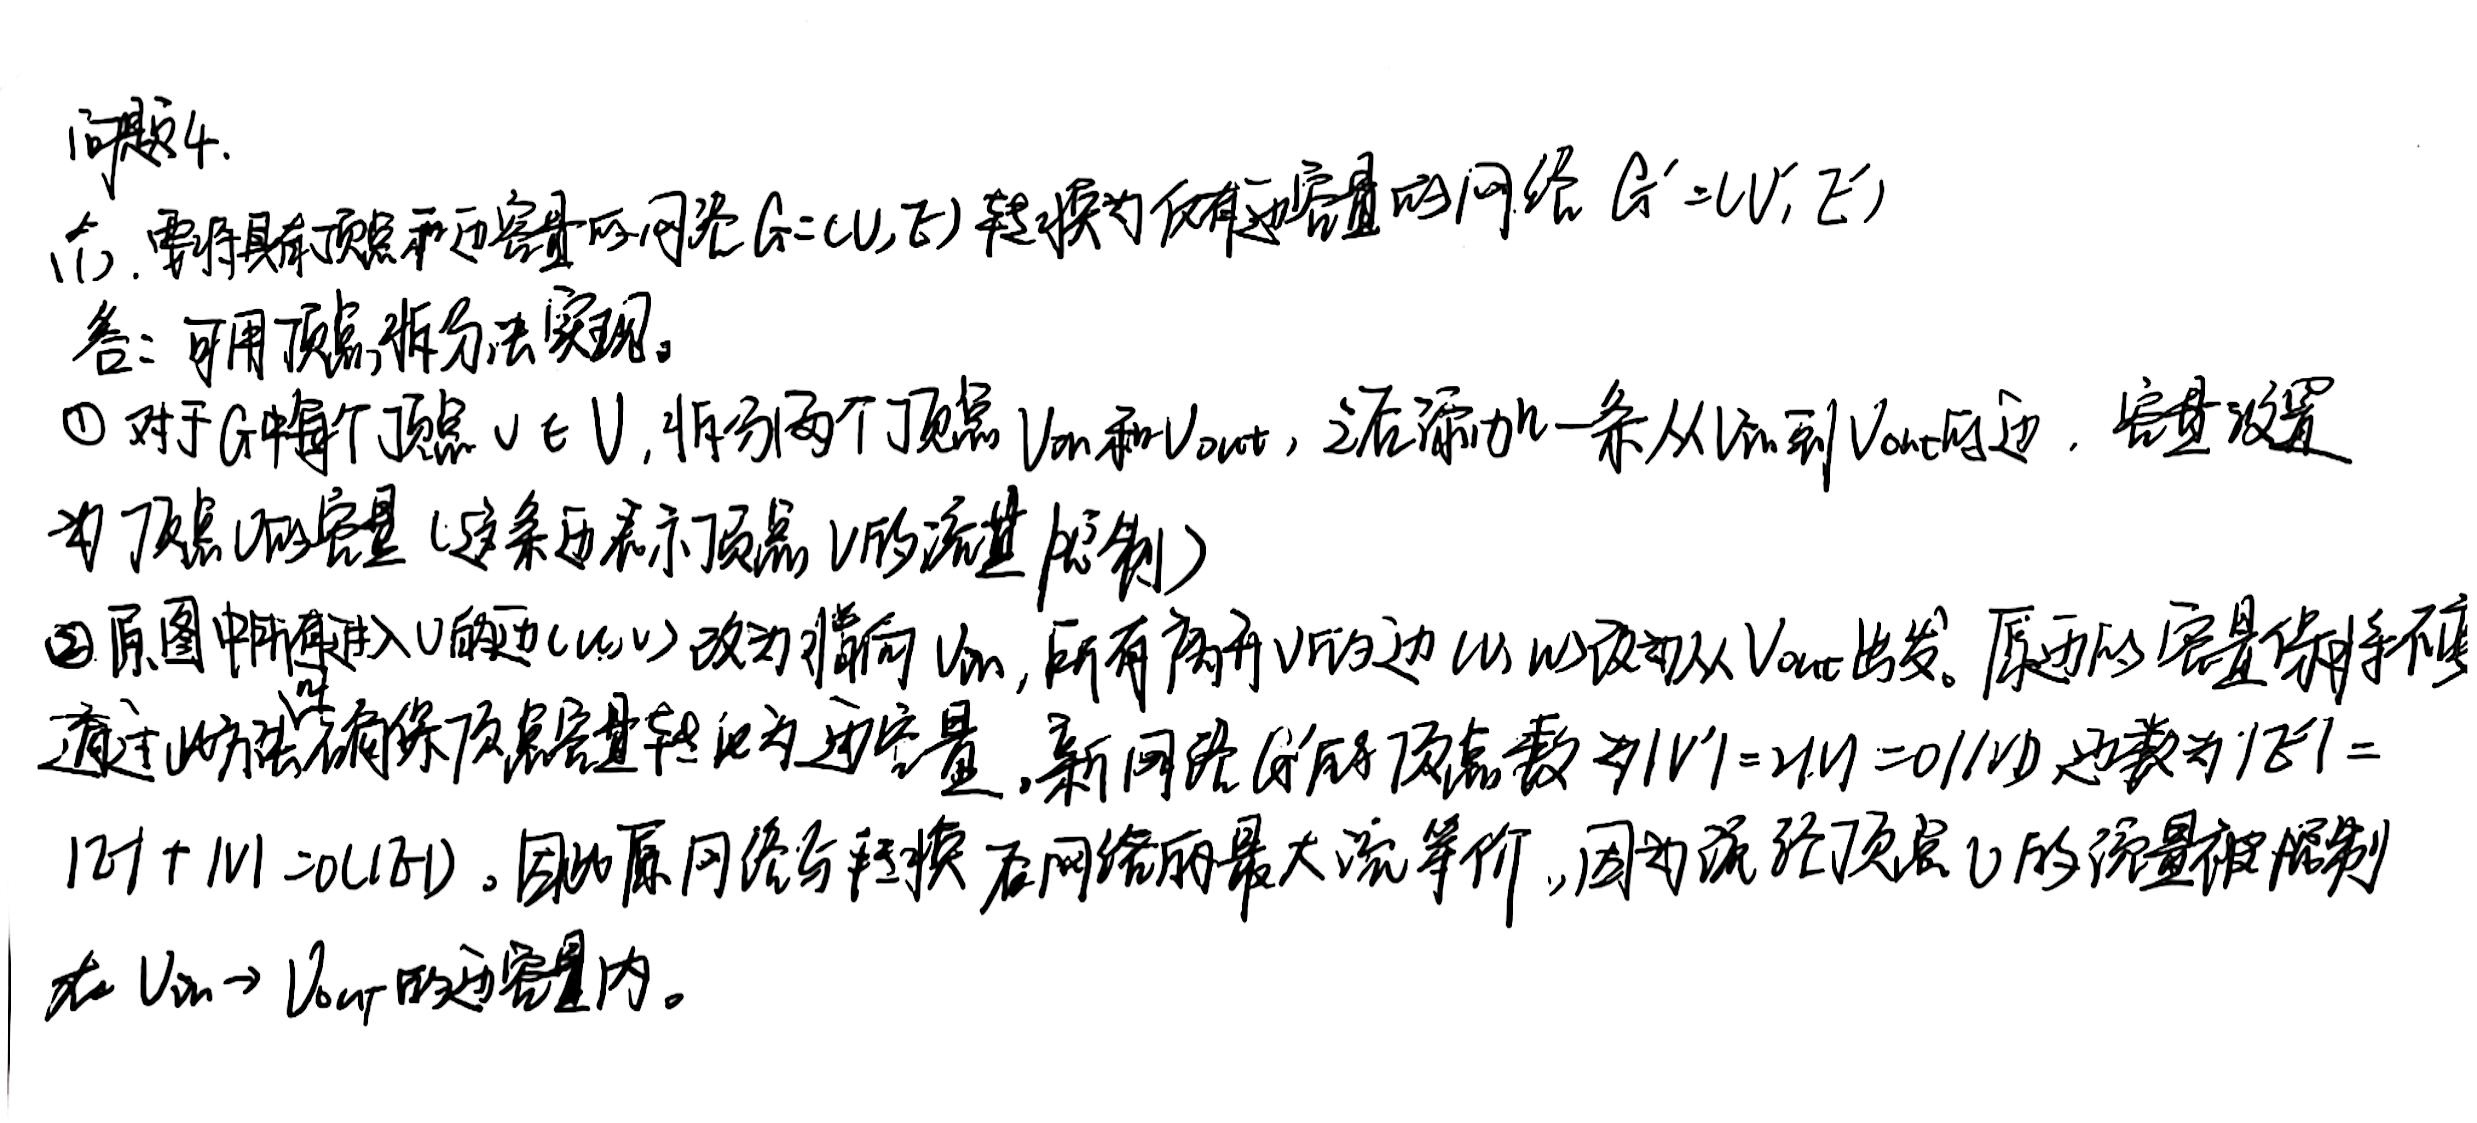 问题4.
(1). 要将具有顶点和边容量的网络 G=(V,E) 转换为仅有边容量的网络 G'=(V',E')
答：可用顶点拆分法实现。
① 对于G中每个顶点 v∈V, 拆分两个顶点 Vin和Vout, 之后添加一条从Vin到Vout的边, 容量设置
为顶点V的容量 (这条边表示顶点V的流量限制)
② 原图中所有进入V的边(u,v) 改为指向 Vin, 所有离开V的边(v,w)改为从Vout出发。原边的容量保持不变
通过此方法可确保顶点容量转化为边容量。新网络G'的顶点数为|V'|=2|V|=O(|V|) 边数为|E'|=
|E|+|V|=O(|E|)。因此原网络与转换后网络的最大流等价,因为流经顶点V的流量被限制
在 Vin→Vout的边容量内。